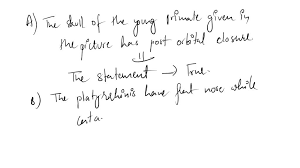 A) The skull of the young primate given in
the picture has post orbital closure
The statement → True.
B) The platyrrhinis have flat nose while
cata-